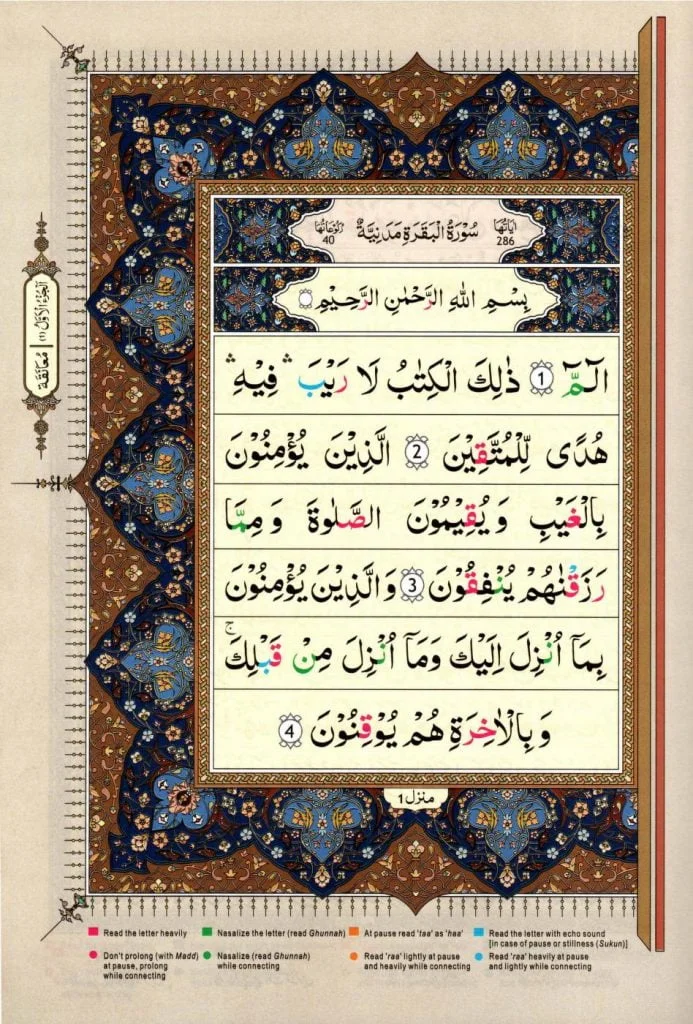 اٰيَاتُهَا 286
سُوْرَةُ الْبَقَرَةِ مَدَنِيَّةٌ
رُكُوْعَاتُهَا 40
بِسْمِ اللّٰهِ الرَّحْمٰنِ الرَّحِيْمِ
الٓمّٓ ١ ذٰلِكَ الْكِتٰبُ لَا رَيْبَ ۛ فِيْهِ ۛ
هُدًى لِّلْمُتَّقِيْنَ 2 الَّذِيْنَ يُؤْمِنُوْنَ
بِالْغَيْبِ وَيُقِيْمُوْنَ الصَّلٰوةَ وَمِمَّا
رَزَقْنٰهُمْ يُنْفِقُوْنَ 3 وَالَّذِيْنَ يُؤْمِنُوْنَ
بِمَآ اُنْزِلَ اِلَيْكَ وَمَآ اُنْزِلَ مِنْ قَبْلِكَ ۚ
وَبِالْاٰخِرَةِ هُمْ يُوْقِنُوْنَ 4
منزل 1
اَلْجُزْءُ الْاَوَّلُ (١)
مُعَانَقَة
Read the letter heavily
Nasalize the letter (read Ghunnah)
At pause read 'taa' as 'haa'
Read the letter with echo sound
[in case of pause or stillness (Sukun)]
Don't prolong (with Madd)
at pause, prolong
while connecting
Nasalize (read Ghunnah)
while connecting
Read 'raa' lightly at pause
and heavily while connecting
Read 'raa' heavily at pause
and lightly while connecting